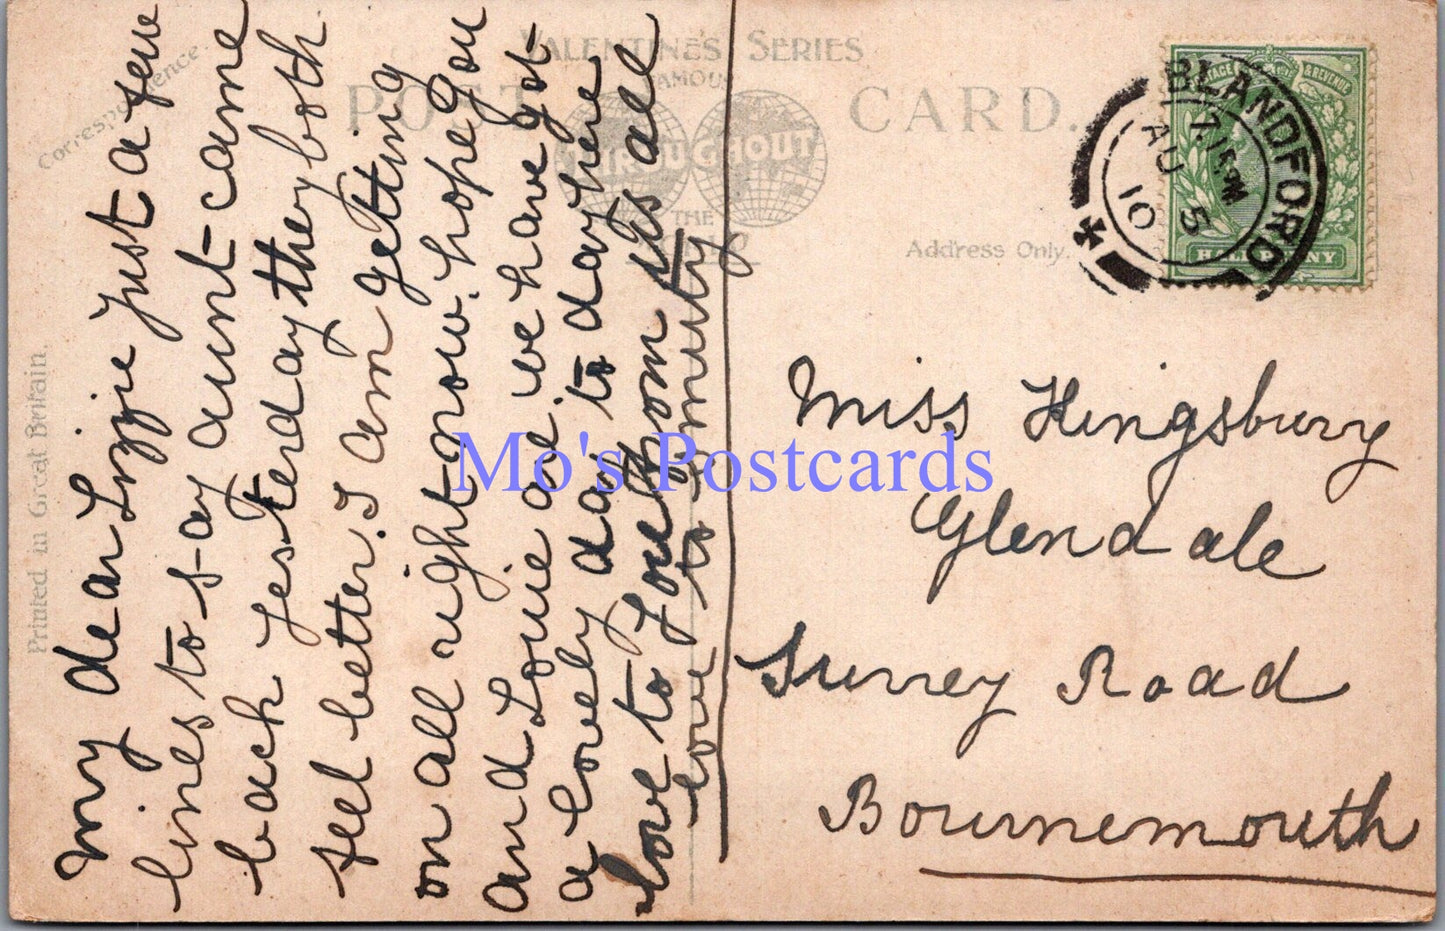 My dear Lizzie just a few
lines to say aunt came
back yesterday they both
feel better. I am getting
on all right now. hope you
and Louie are. we have got
a lovely day to day here
love to you from us all
love to
Correspondence
Printed in Great Britain.
VALENTINE'S SERIES
FAMOUS
THROUGHOUT
THE
WORLD
POST CARD.
Address Only.
BLANDFORD
7.15PM
AU 5
10
POSTAGE & REVENUE
HALFPENNY
Miss Kingsbury
Glendale
Surrey Road
Bournemouth
Mo's Postcards